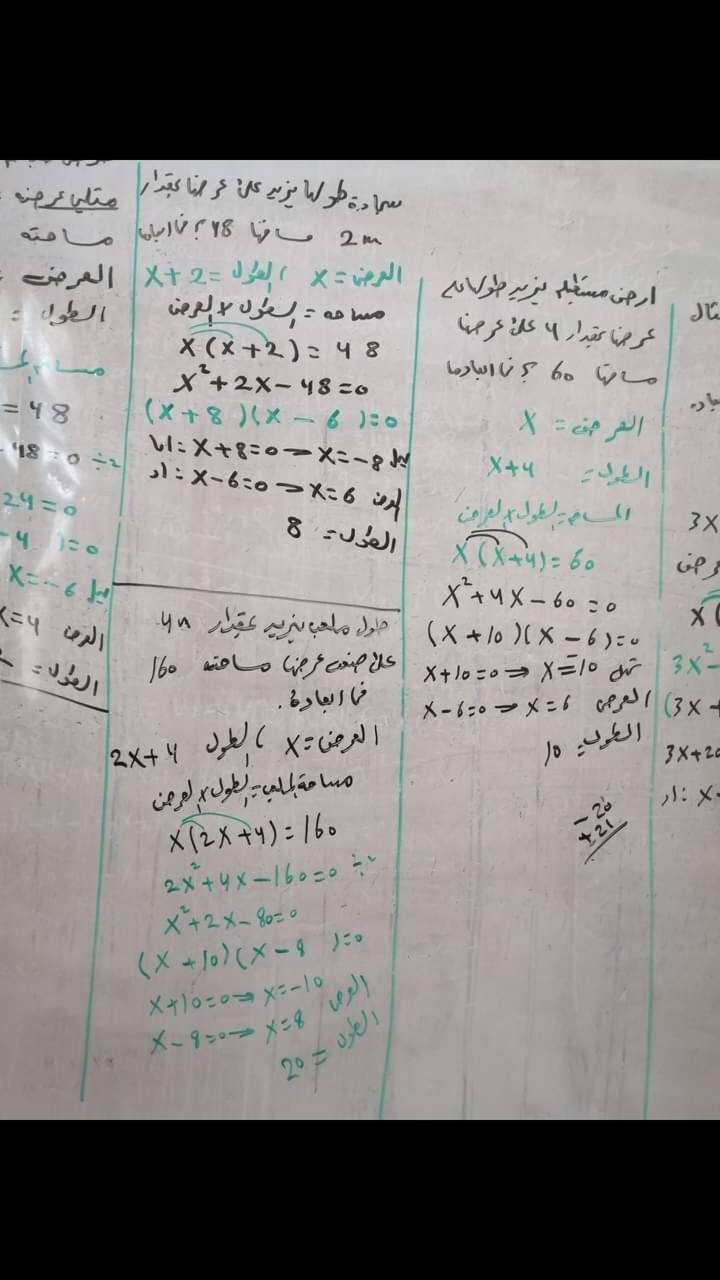 مثال
3x
عرض
x(
3x² -
(3x +
3x+20
او: x-
ارض مستطيلة يزيد طولها على
عرضها بمقدار 4 على عرضها
مساحتها 60 ؟ فما ابعادها
العرض = x
الطول = x+4
المساحة = الطول × العرض
x(x+4)=60
x²+4x-60=0
(x+10)(x-6)=0
x+10=0 ⇒ x=-10 تهمل
x-6=0 ⇒ x=6 العرض
الطول = 10
-20
+21
سجادة طولها يزيد على عرضها بمقدار
2m مساحتها 48 ؟ فما ابعادها
العرض = x الطول = x+2
مساحه = الطول × العرض
x(x+2)=48
x²+2x-48=0
(x+8)(x-6)=0
اما: x+8=0 → x=-8 يهمل
او: x-6=0 → x=6 العرض
الطول = 8
طول ملعب يزيد بمقدار 4m
على ضعف عرضها مساحته 160
فما ابعاده.
العرض = x الطول 2x+4
مساحة الملعب = الطول × العرض
x(2x+4)=160
2x²+4x-160=0 ÷2
x²+2x-80=0
(x+10)(x-8)=0
x+10=0 → x=-10
x-8=0 → x=8 العرض
الطول = 20
مثلي عرضه
مساحته
العرض
الطول =
= 48
-48=0 ÷2
24=0
-4 )=0
x=-6 يهمل
x=4 العرض
الطول =